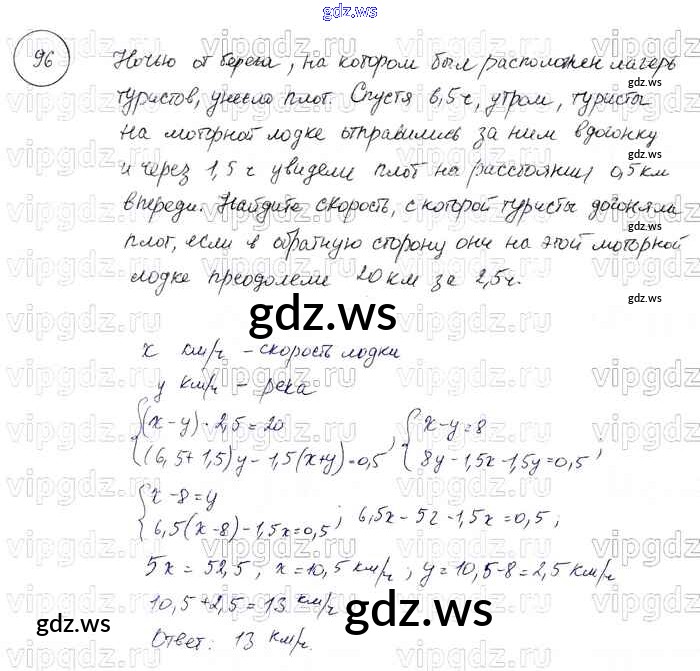 gdz.ws
96
Ночью от берега, на котором был расположен лагерь
туристов, унесло плот. Спустя 6,5 ч, утром, туристы
на моторной лодке отправились за ним вдогонку
и через 1,5 ч увидели плот на расстоянии 0,5 км
впереди. Найдите скорость, с которой туристы догоняли
плот, если в обратную сторону они на этой моторной
лодке преодолели 20 км за 2,5 ч.
x км/ч - скорость лодки
y км/ч - река
{(x-y)·2,5=20
{(6,5+1,5)y-1,5(x+y)=0,5 ; {x-y=8
{8y-1,5x-1,5y=0,5 ;
{x-8=y
{6,5(x-8)-1,5x=0,5 ; 6,5x-52-1,5x=0,5 ;
5x=52,5 ; x=10,5 км/ч ; y=10,5-8=2,5 км/ч
10,5+2,5=13 км/ч
Ответ: 13 км/ч.
gdz.ws
gdz.ws
gdz.ws
gdz.ws
gdz.ws
gdz.ws
gdz.ws
vipgdz.ru